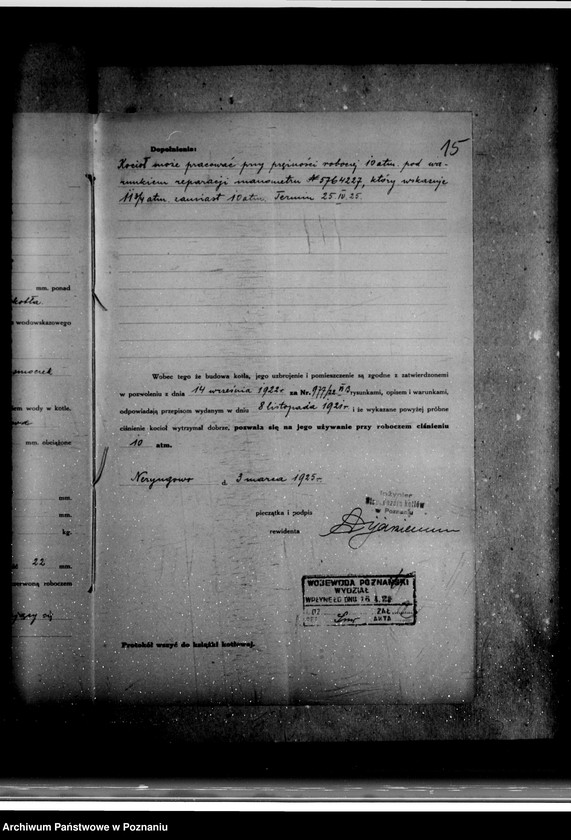 15
Dopełnienie:
Kocioł może pracować przy prężności roboczej 10 atm. pod wa-
runkiem reparacji manometru № 5764227, który wskazuje
11 3/4 atm. zamiast 10 atm. Termin 25 IV 25.
mm. ponad
kotła
wodowskazowego
Wobec tego że budowa kotła, jego uzbrojenie i pomieszczenie są zgodne z zatwierdzonemi
w pozwoleniu z dnia 14 września 1922 r. za Nr. 977/22 rysunkami, opisem i warunkami,
iem wody w kotle,
odpowiadają przepisom wydanym w dniu 8 listopada 1921 r. i że wykazane powyżej próbne
ciśnienie kocioł wytrzymał dobrze, pozwala się na jego używanie przy roboczem ciśnieniu
mm. obciążone
10 atm.
d. 3 marca 1925 r.
mm.
Inżynier
w Poznaniu
mm.
pieczątka i podpis
kg.
rewidenta
22 mm.
erwoną roboczem
WOJEWODA POZNAŃSKI
WYDZIAŁ
WPŁYNĘŁO DNIA
ZAŁ.
AKTA
Protokół wszyć do książki kotłowej.
Archiwum Państwowe w Poznaniu